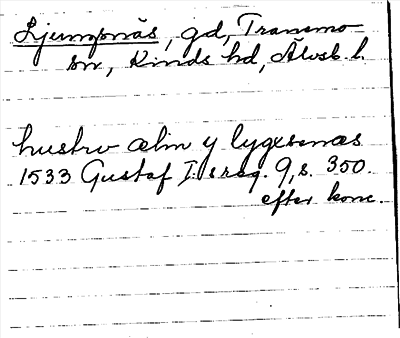 Ljungsnäs, gd, Tranemo
sn, Kinds hd, Älvsb. l.
hustro ælin y lygesnæs
1533 Gustaf I:s reg. 9, s. 350.
efter konc.